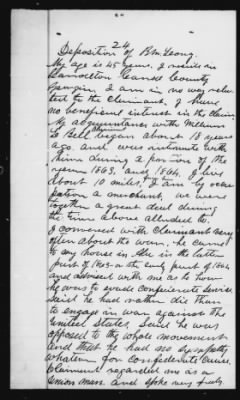 24
Deposition of B M Leong
My age is 45 years. I reside in
Hamilton County
Georgia, I am in no way rela-
ted to the Claimant, I have
no beneficial interest in the claim
My acquaintance with
Bell Claimant began about 18 years
ago, and was intimate with
him during a portion of the
years 1863, and 1864, I live
about 10 miles, I am by occu-
pation a merchant, we were
together a great deal during
the time above alluded to.
I conversed with Claimant very
often about the war, he came
to my house in the latter
part of 1863 or the early part of 1864
and advised with me as to how
he was to evade confederate service
said he had rather die than
to engage in war against the
United States, Said he was
opposed to the whole movement
and that he had no sympathy
whatever for Confederate Cause,
Claimant regarded me as a
Union man, and spoke very freely